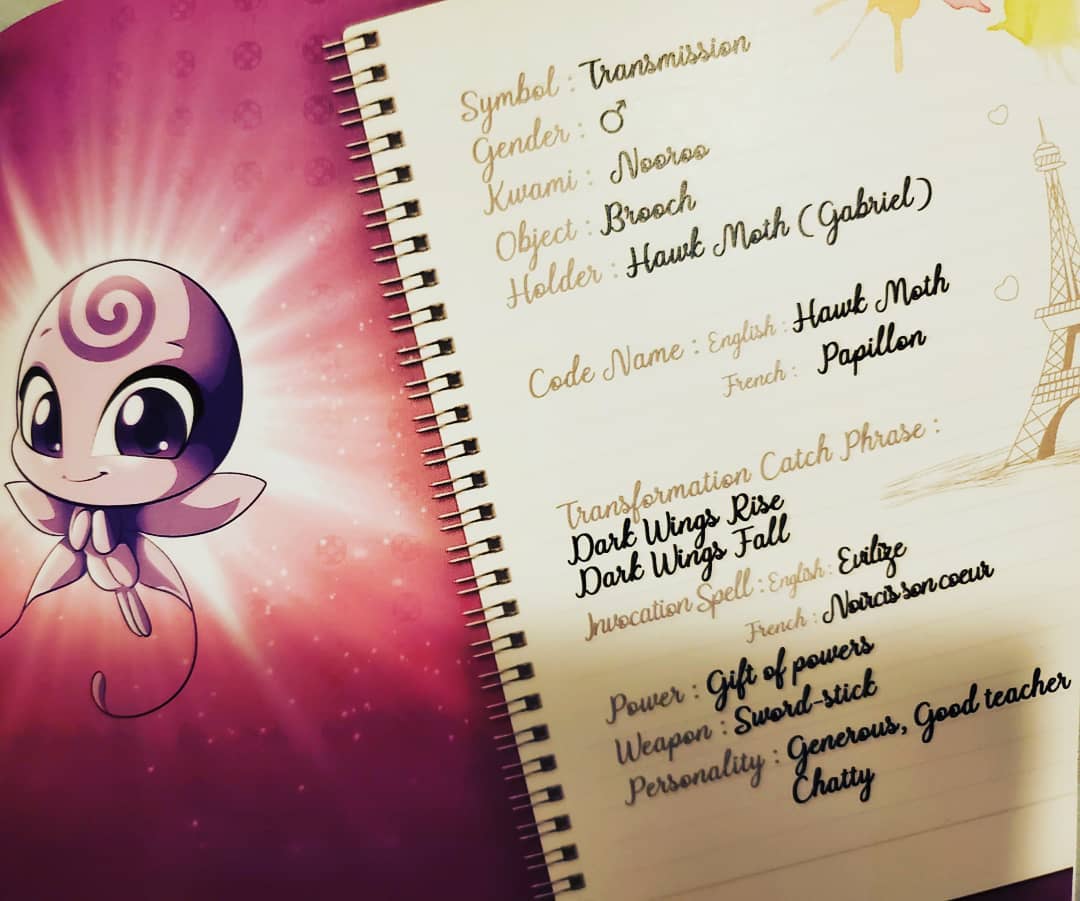 Symbol : Transmission
Gender : ♂
Kwami : Nooroo
Object : Brooch
Holder : Hawk Moth (Gabriel)
Code Name : English : Hawk Moth
French : Papillon
Transformation Catch Phrase :
Dark Wings Rise
Dark Wings Fall
Invocation Spell : English : Evilize
French : Noircis son coeur
Power : Gift of powers
Weapon : Sword-stick
Personality : Generous, Good teacher
Chatty